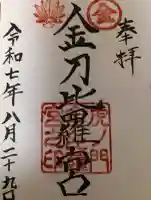 奉拝
金刀比羅宮
虎ノ門
令和七年八月二十九日